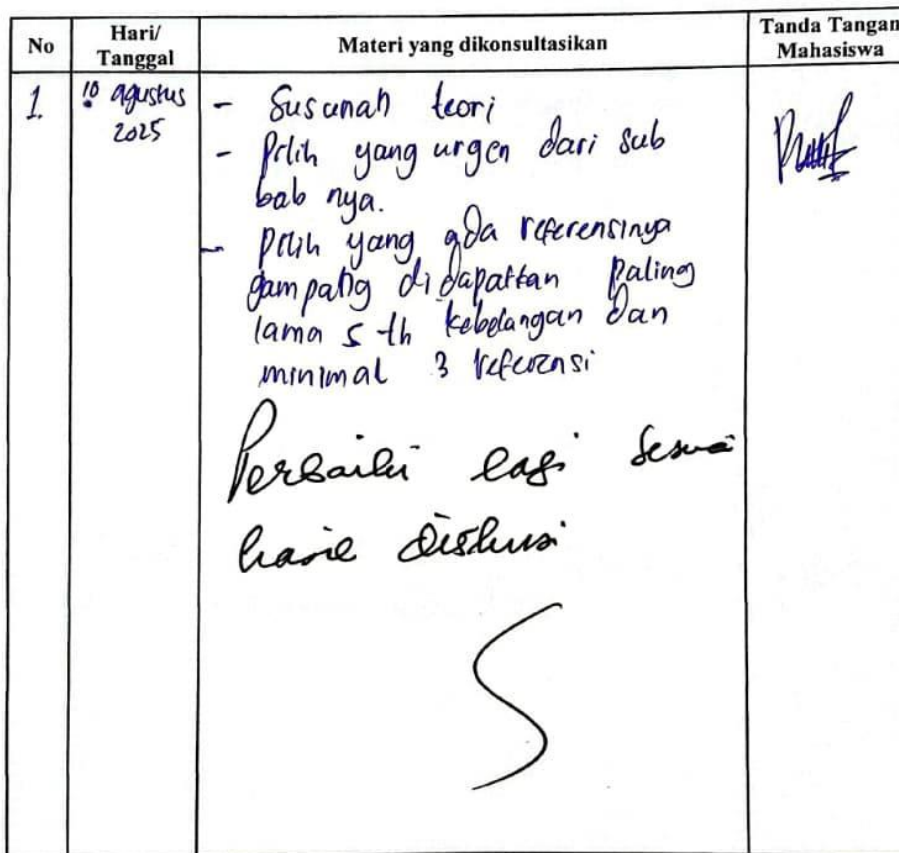 No
Hari/
Tanggal
Materi yang dikonsultasikan
Tanda Tangan
Mahasiswa
1.
10 agustus
2025
- Susunan teori
- Pilih yang urgen dari sub
bab nya.
- pilih yang ada referensinya
gampang didapatkan paling
lama 5 th kebelangan dan
minimal 3 referensi
Perbaiki lagi sesuai
hasil diskusi